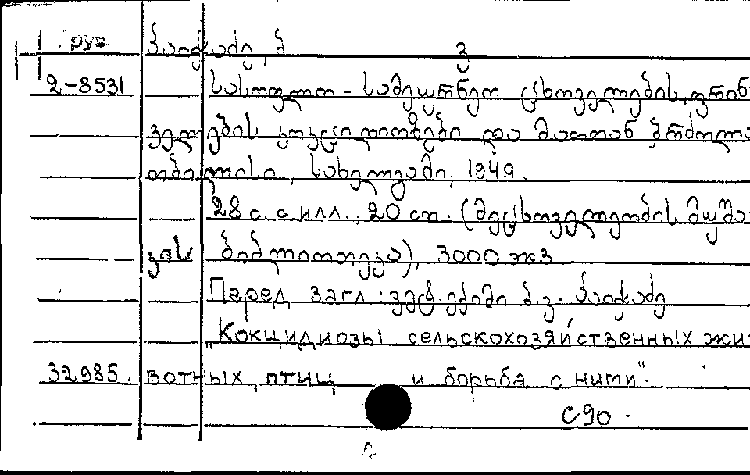 груз
2-8531
სასოფლო-სამეურნეო ცხოველების, ფრინ
ველების კოკციდიოზები და მათთან ბრძოლა
თბილისი, სახელგამი, 1949.
28 с. с илл., 20 см. (მეცხოველეობის მუშა
კის ბიბლიოთეკა), 3000 экз
Перед загл.: ვეტ. ექიმი
„Кокцидиозы сельскохозяйственных жи
32985. вотных, птиц и борьба с ними".
с90.